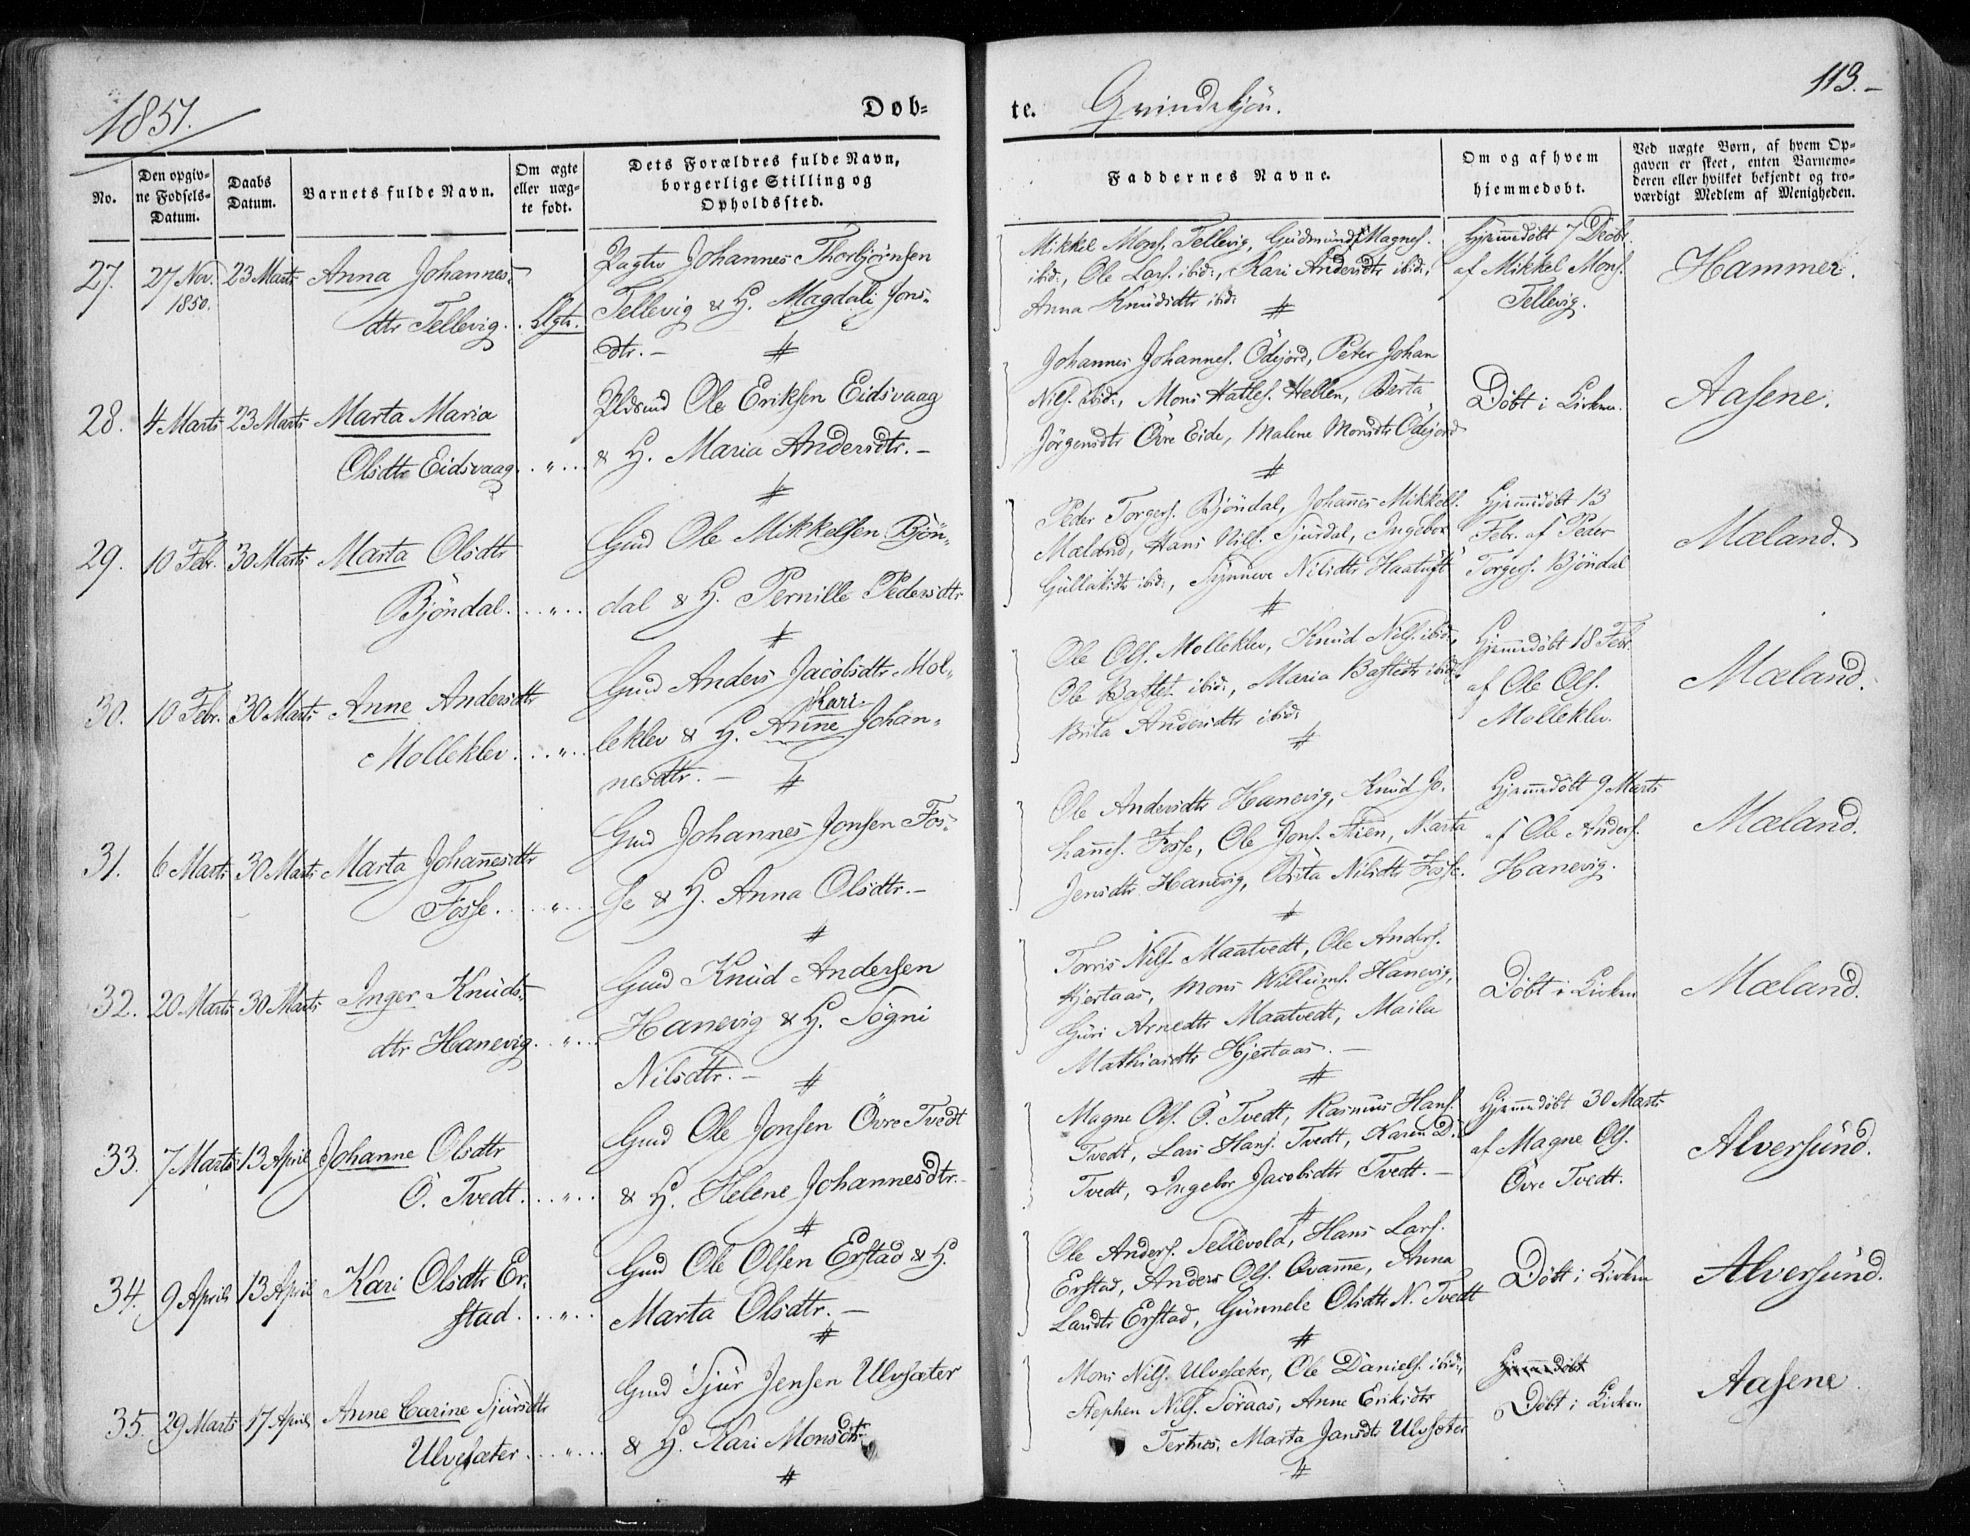 1851.
Døb-
te.
Qvindekjön.
113.-
No.
Den opgiv-
ne Fødsels-
Datum.
Daabs
Datum.
Barnets fulde Navn.
Om ægte
eller uæg-
te født.
Dets Forældres fulde Navn,
borgerlige Stilling og
Opholdssted.
Faddernes Navne.
Om og af hvem
hjemmedøbt.
Ved uægte Børn, af hvem Op-
gaven er skeet, enten Barnemo-
deren eller hvilket bekjendt og tro-
værdigt Medlem af Menigheden.
27.
27 Nov.
1850.
23 Marts
Anna Johannes-
dtr Tellevig.
Ægte.
Johannes Thorbjörnsen
Tellevig & H. Magdali Jons-
dtr. -
Mikkel Mons. Tellevig, Gudmund Magnes.
ibid:, Ole Lars. ibid:, Kari Andersdtr ibid:,
Anna Knudsdtr ibid:
Hjemmedöbt 7 Decbr.
af Mikkel Mons.
Tellevig.
Hammer.
28.
4 Marts
23 Marts
Marta Maria
Olsdtr Eidsvaag
Ole Eriksen Eidsvaag
& H. Maria Andersdtr. -
Johannes Johannes. Ödejord, Peter Johan
Nils. ibid:, Mons Hatles. Heblen, Berta
Jörgensdtr Övre Eide, Malene Monsdtr Ödejord
Döbt i Kirken.
Aasene.
29.
10 Febr.
30 Marts
Marta Olsdtr
Bjöndal.
Gmd Ole Mikkelsen Bjön-
dal & H. Pernille Pedersdtr
Peder Torgers. Bjöndal, Johannes Mikkels.
Mæland, Hans Nils. Sjurdal, Ingebor
Gullaksdtr ibid:, Synneve Nilsdtr Haatuft
Hjemmedöbt 13
Febr. af Peder
Torgers. Bjöndal
Mæland.
30.
10 Febr.
30 Marts
Anne Andersdtr
Molleklev
Gmd Anders Jacobsdtr Mol-
Kari
leklev & H. Anne Johan-
nesdtr. -
Ole Ols. Molleklev, Knud Nils. ibid:,
Ole ibid:, Maria ibid:
Brita Andersdtr ibid:
Hjemmedöbt 18 Febr.
af Ole Ols.
Molleklev.
Mæland.
31.
6 Marts
30 Marts
Marta Johannesdtr
Fosse.
Gmd Johannes Jonsen Fos-
se & H. Anna Olsdtr. -
Ole Andersdtr Hanevig, Knud Jo-
hannes. Fosse, Ole Jons. Stien, Marta
Jensdtr Hanevig, Brita Nilsdtr Fosse.
Hjemmedöbt 9 Marts
af Ole Anders.
Hanevig.
Mæland.
32.
20 Marts
30 Marts
Inger Knuds-
dtr Hanevig
Gmd Knud Andersen
Hanevig & H. Tögni
Nilsdtr. -
Torris Nils. Maatvedt, Ole Anders.
Hjertaas, Mons Willums. Hanevig,
Guri Arnedtr Maatvedt, Maila
Mathiasdtr Hjertaas. -
Döbt i Kirken
Mæland.
33.
7 Marts
13 April
Johanne Olsdtr
Ö. Tvedt.
Gmd Ole Jonsen Övre Tvedt
& H. Helene Johannesdtr. -
Magne Ols. Ö. Tvedt, Rasmus Hans.
Tvedt, Lars Hans. Tvedt, Karen D:
Tvedt, Ingebor Jacobsdtr Tvedt. -
Hjemmedöbt 30 Marts
af Magne Ols.
Övre Tvedt.
Alversund.
34.
9 April
13 April
Kari Olsdtr Er-
stad.
Gmd Ole Olsen Erstad & H.
Marta Olsdtr. -
Ole Anders. Tellevold, Hans Lars.
Erstad, Anders Ols. Qvamme, Anna
Larsdtr Erstad, Gunnele Olsdtr N. Tvedt
Döbt i Kirken
Alversund.
35.
29 Marts
17 April
Anne Carine Sjursdtr
Ulvesæter
Gmd Sjur Jensen Ulvsæter
& H. Kari Monsdtr.
Mons Nils. Ulvesæter, Ole Daniels. ibid:,
Stephen Nils. Söraas, Anne Eriksdtr
Tertnes, Marta Jansdtr Ulvsæter
Hjemmedöbt
Döbt i Kirken
Aasene